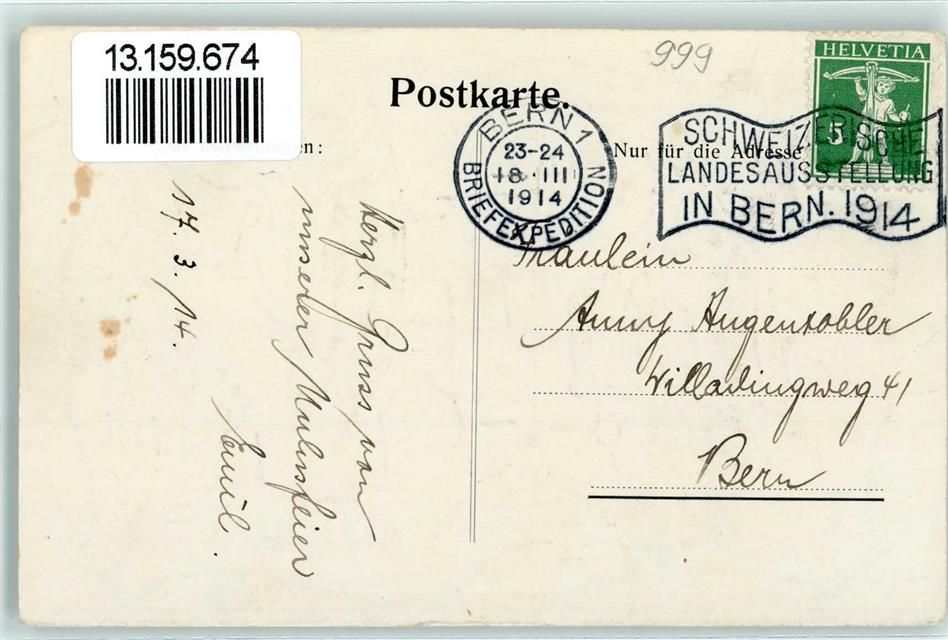 13.159.674
999
HELVETIA
5
Postkarte.
BERN 1
23-24
18·III
1914
BRIEFEXPEDITION
SCHWEIZERISCHE
LANDESAUSSTELLUNG
IN BERN. 1914
en:
Nur für die Adresse
17. 3. 14.
Herzl. Gruss von
unserer
Emil.
Fräulein
Anny Augentobler
Willadingweg 41
Bern